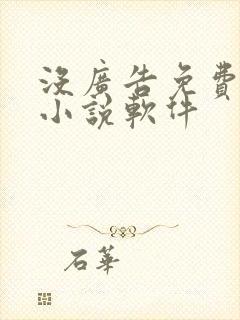 沒廣告免費
小說軟件
石華